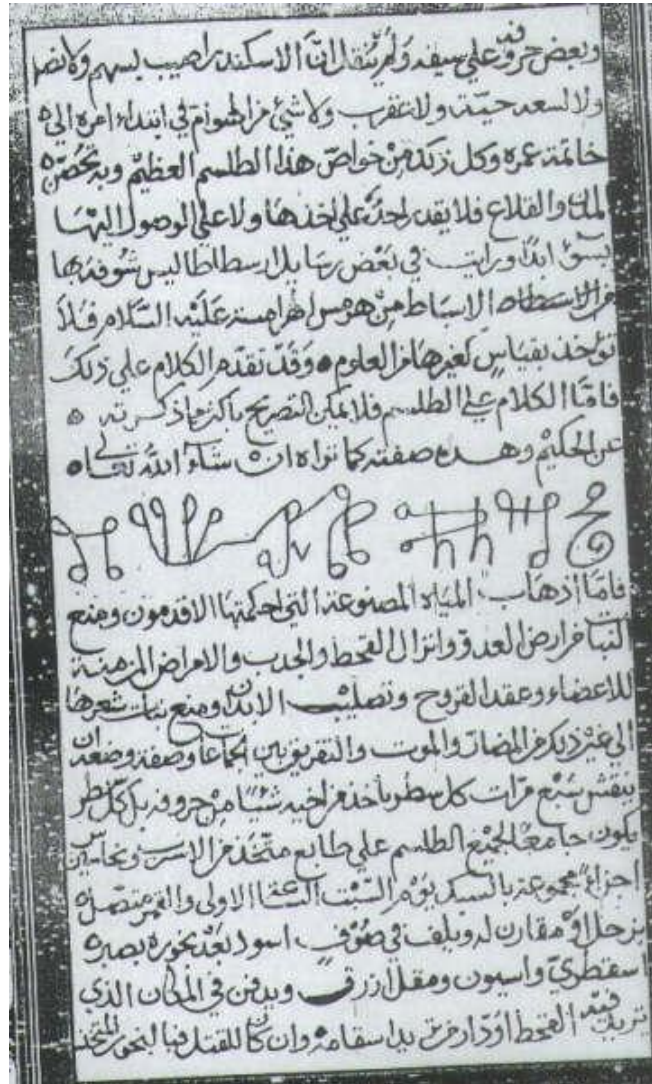 وبعض حروفه على سيفه ولم ينقل ان الاسكندر اصيب بسهم ولا نصل
ولا لسعه حية ولا عقرب ولا شئ من الهوام في ابتداء امره الي
خاتمة عمره وكل ذلك من خواص هذا الطلسم العظيم وبه تحصن
المدن والقلاع فلا يقدر احد علي اخذها ولا علي الوصول اليها
بسوء ابدا ورايت في بعض رسايل ارسطاطاليس
من الاسطاطا الاسباط من هرمس الهرامسة عليه السلام فلا
تؤخذ بقياس لغيرها من العلوم وقد تقدم الكلام علي ذلك
فاما الكلام علي الطلسم فلا يمكن التصريح باكثر مما ذكرته
عن الحكيم وهذه صفته كما تراه ان شاء الله تعالى
فاما اذهاب المياه المصنوعة التي احكمتها الاقدمون ومنع
النبات من ارض العدو وانزال القحط والجدب والامراض المزمنة
للاعضاء وعقد الفروج وتصليب الابدان ومنع نبات شعرها
الي غير ذلك من المضار والموت والتفريق بين الجماعا وصفة وضعه ان
ينقش سبع مرات كل سطر ياخذ من اخيه شيئا من حروفه بل كل سطر
يكون جامعا لجميع الطلسم علي طابع متخذ من الاسرب ونحاس
اجزاء مجموعة بالسبك يوم السبت الساعة الاولى والقمر متصل
بزحل او مقارن له ويلف في صوف اسود بعد بخوره بصبر
اسقطري واسيون ومقل ازرق ويدفن في المكان الذي
تريد فيه القحط او دار من تريد اسقامه وان كان للقتل فبالبخور المتخذ